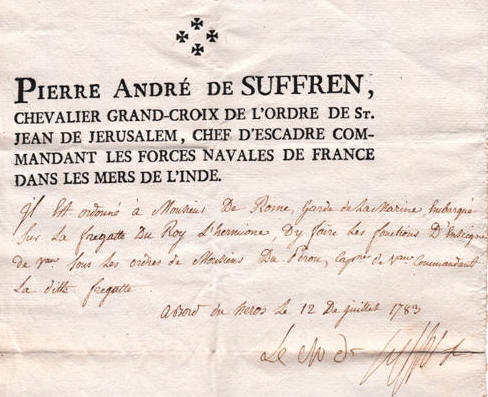 PIERRE ANDRÉ DE SUFFREN,
CHEVALIER GRAND-CROIX DE L'ORDRE DE ST.
JEAN DE JERUSALEM, CHEF D'ESCADRE COM-
MANDANT LES FORCES NAVALES DE FRANCE
DANS LES MERS DE L'INDE.
Il Est ordonné à Monsieur De Rome, Garde de La Marine, Embarqué
Sur La fregatte Du Roy L'hermione, Dy faire Les fonctions D'Enseigne
de Vau. Sous Les ordres de Monsieur Du Pérou, Capne. de Vau. Commandant
La ditte fregatte.
Abord du heros Le 12 De juillet 1783
Le Ch de Suffren